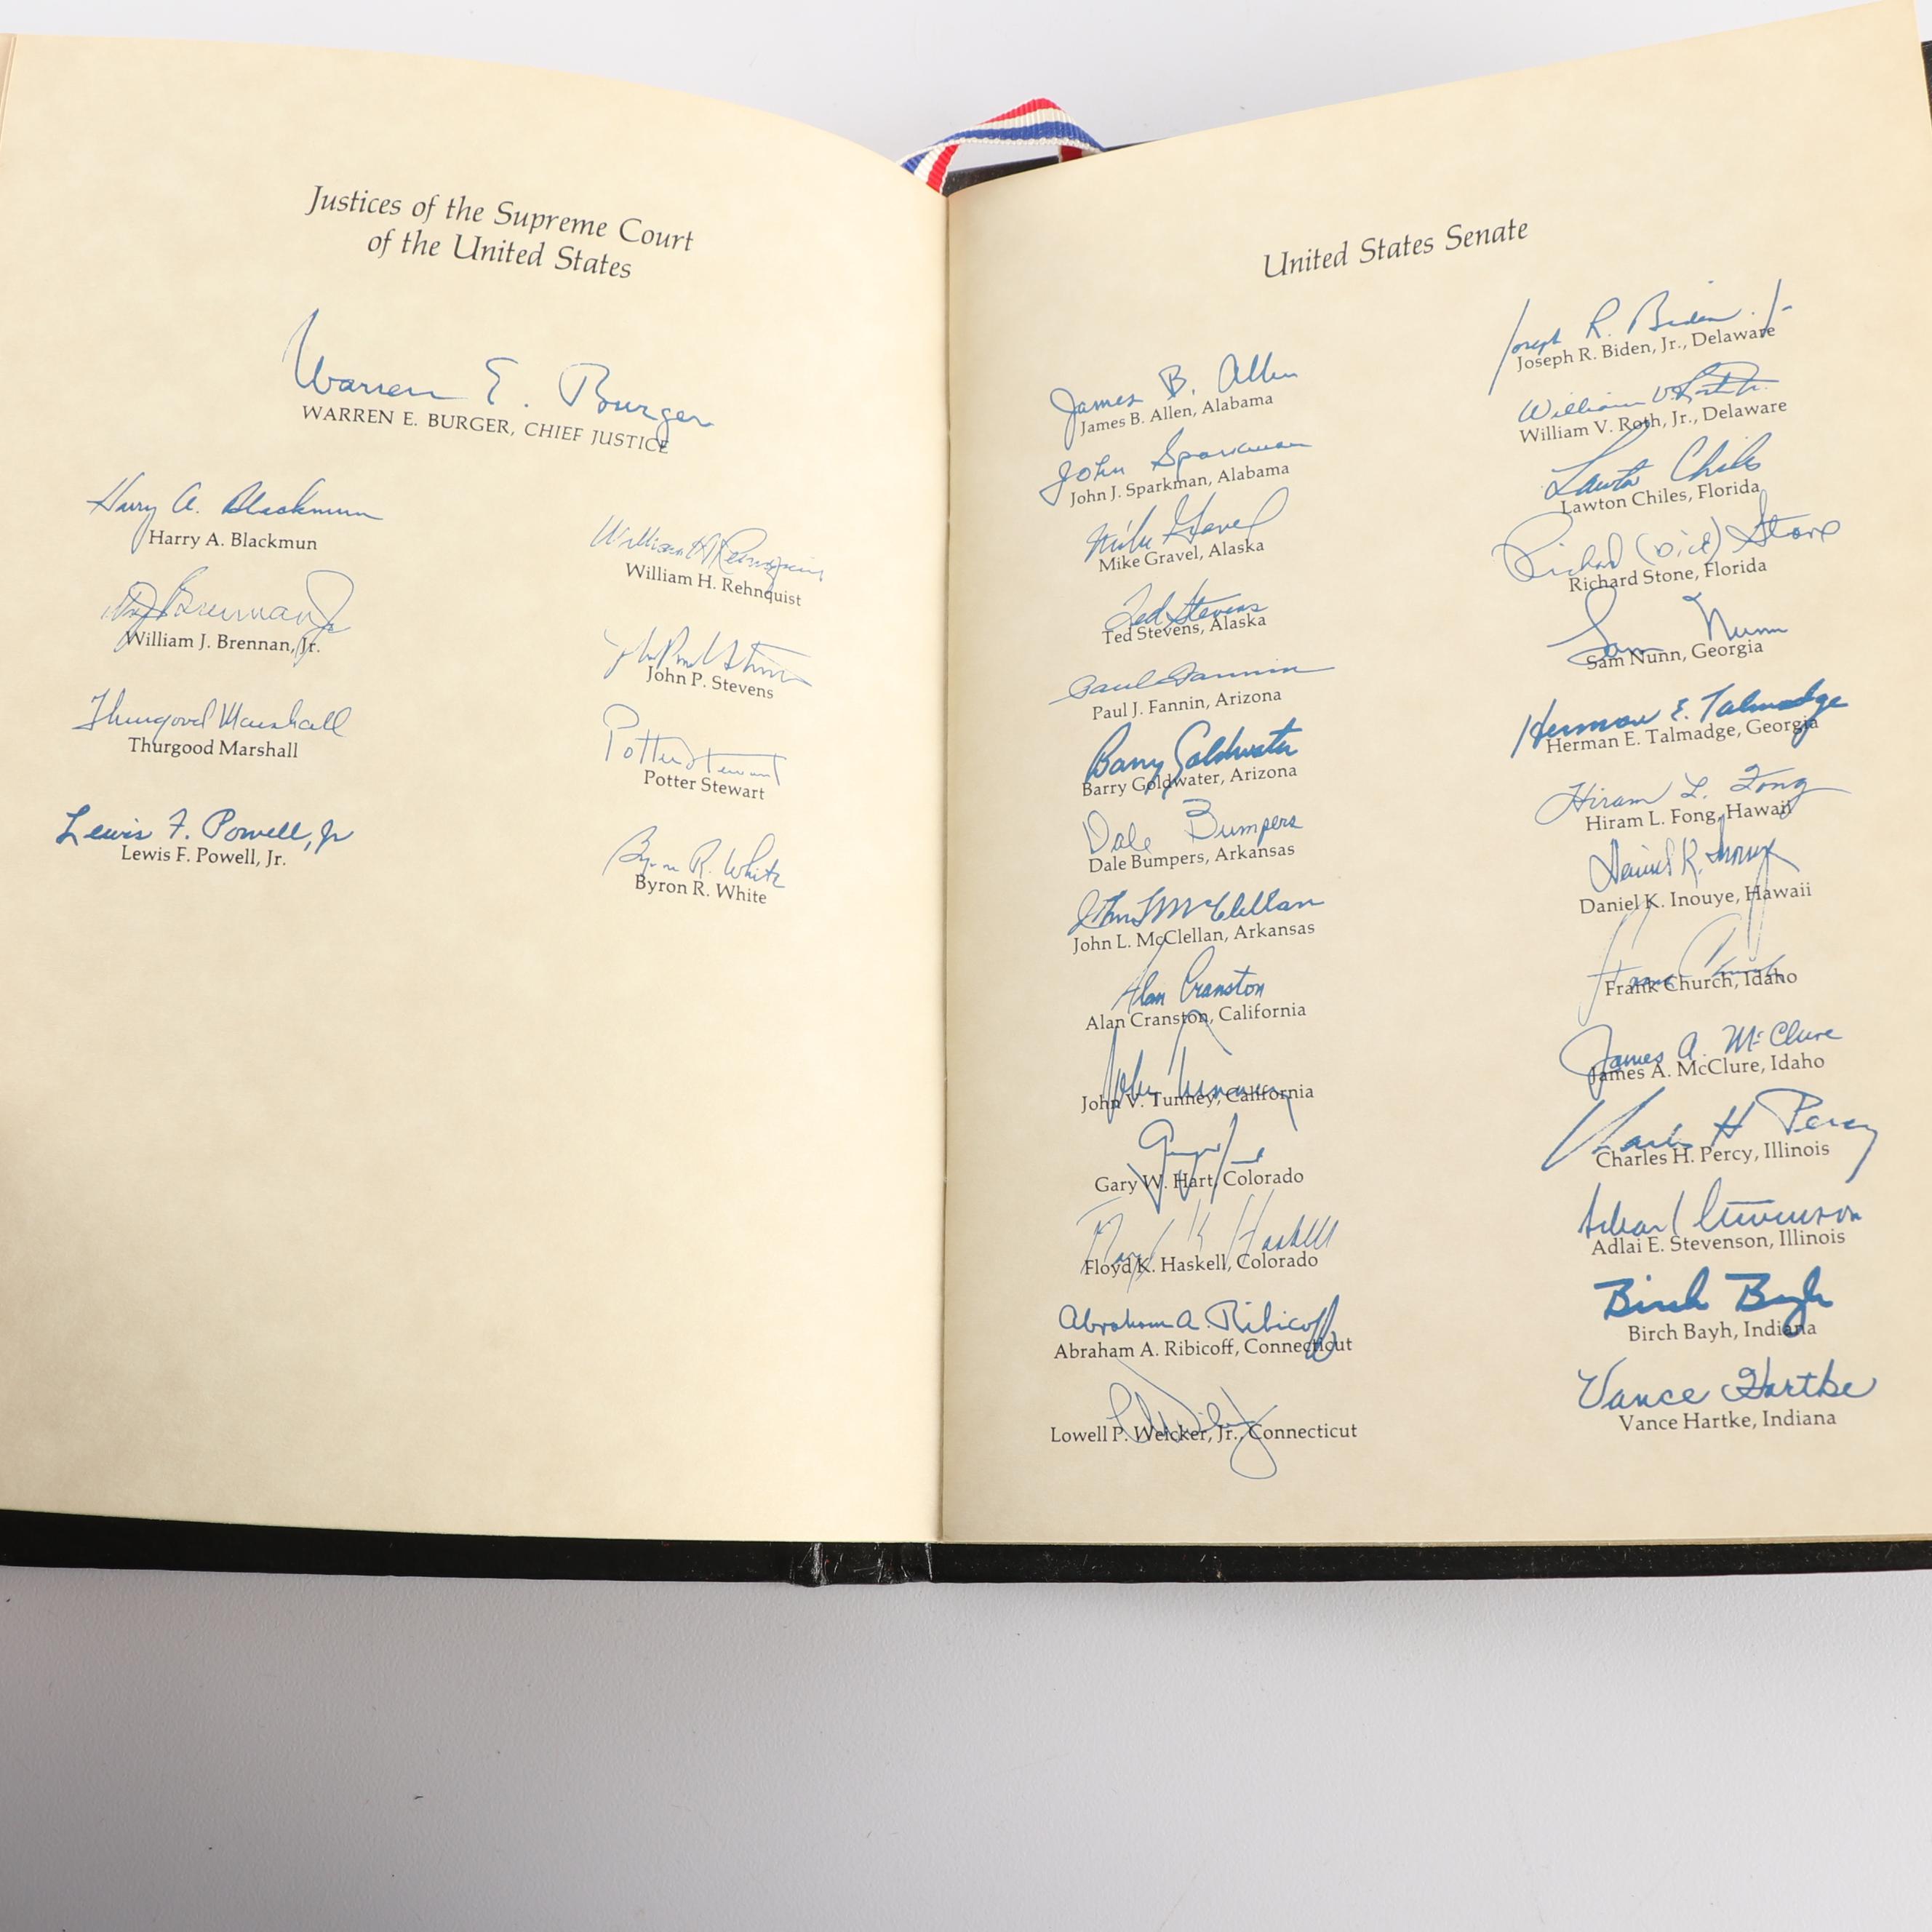 Justices of the Supreme Court
of the United States
Warren E. Burger
WARREN E. BURGER, CHIEF JUSTICE
Harry A. Blackmun
Harry A. Blackmun
Wm J Brennan Jr
William J. Brennan, Jr.
Thurgood Marshall
Thurgood Marshall
Lewis F. Powell, Jr
Lewis F. Powell, Jr.
William H Rehnquist
William H. Rehnquist
John Paul Stevens
John P. Stevens
Potter Stewart
Potter Stewart
Byron R. White
Byron R. White
United States Senate
James B. Allen
James B. Allen, Alabama
John Sparkman
John J. Sparkman, Alabama
Mike Gravel
Mike Gravel, Alaska
Ted Stevens
Ted Stevens, Alaska
Paul Fannin
Paul J. Fannin, Arizona
Barry Goldwater
Barry Goldwater, Arizona
Dale Bumpers
Dale Bumpers, Arkansas
John L McClellan
John L. McClellan, Arkansas
Alan Cranston
Alan Cranston, California
John Tunney
John V. Tunney, California
Gary Hart
Gary W. Hart, Colorado
Floyd K Haskell
Floyd K. Haskell, Colorado
Abraham A. Ribicoff
Abraham A. Ribicoff, Connecticut
Lowell P. Weicker, Jr., Connecticut
Joseph R. Biden Jr
Joseph R. Biden, Jr., Delaware
William V. Roth Jr.
William V. Roth, Jr., Delaware
Lawton Chiles
Lawton Chiles, Florida
Richard (Dick) Stone
Richard Stone, Florida
Sam Nunn
Sam Nunn, Georgia
Herman E. Talmadge
Herman E. Talmadge, Georgia
Hiram L. Fong
Hiram L. Fong, Hawaii
Daniel K. Inouye
Daniel K. Inouye, Hawaii
Frank Church
Frank Church, Idaho
James A. McClure
James A. McClure, Idaho
Charles H Percy
Charles H. Percy, Illinois
Adlai Stevenson
Adlai E. Stevenson, Illinois
Birch Bayh
Birch Bayh, Indiana
Vance Hartke
Vance Hartke, Indiana